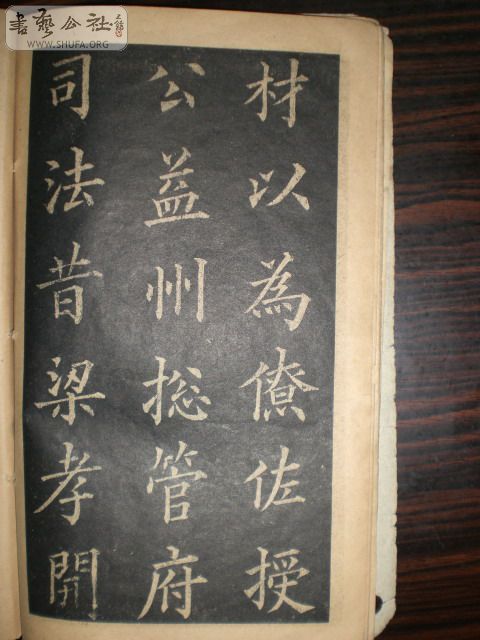 書藝公社
WWW.SHUFA.ORG
材以為僚佐授
公益州総管府
司法昔梁孝開